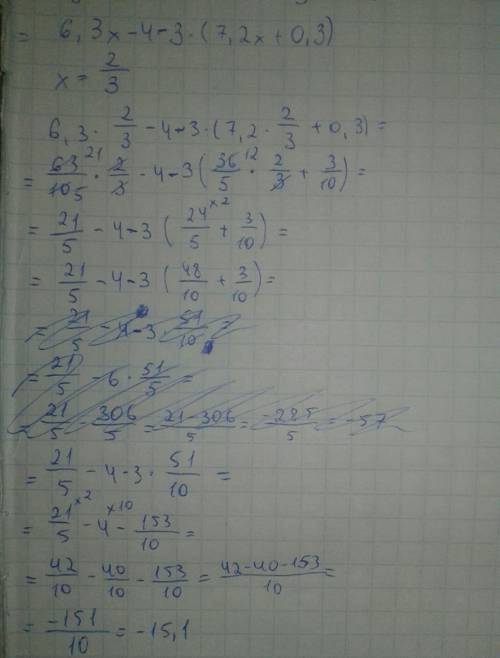 = 6,3x-4-3·(7,2x+0,3)
x = 2/3
6,3 · 2/3 - 4-3·(7,2 · 2/3 + 0,3) =
= 63²¹/10 5 · 2/3 - 4-3(36¹²/5 · 2/3 + 3/10) =
= 21/5 - 4-3 (24ˣ²/5 + 3/10) =
= 21/5 - 4-3 (48/10 + 3/10) =
= 21/5 - 4-3 · 51/10 =
= 21/5 - 6 · 51/5 =
= 21/5 - 306/5 = 21-306/5 = -285/5 = -57
= 21/5 - 4-3 · 51/10 =
= 21ˣ²/5 - 4ˣ¹⁰ - 153/10 =
= 42/10 - 40/10 - 153/10 = 42-40-153/10 =
= -151/10 = -15,1